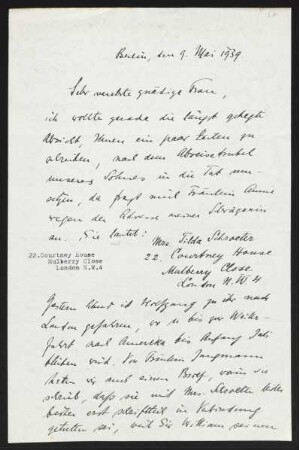 Berlin, den 9. Mai 1939
Sehr verehrte gnädige Frau,
ich wollte gerade die längst gehegte
Absicht, Ihnen ein paar Zeilen zu
schreiben, nach dem Abreisetrubel
unseres Sohnes in die Tat um-
setzen, da fragt mich Fräulein Anna
wegen der Adresse meiner Schwägerin
an. Sie lautet: Mrs Tilda Schroeter
22. Courtney House
Mulberry Close
London N.W. 4
22.Courtney House
Mulberry Close
London N.W.4
Gestern Abend ist Wolfgang zu ihr nach
London gefahren, wo er bis zur Weiter-
fahrt nach Amerika bis Anfang Juli
bleiben wird. Von Fräulein Jungmann
hatten wir auch einen Brief, worin sie
schrieb, daß sie mit Mrs. Schroeter
in Verbindung
getreten sei, weil Sie William seinen